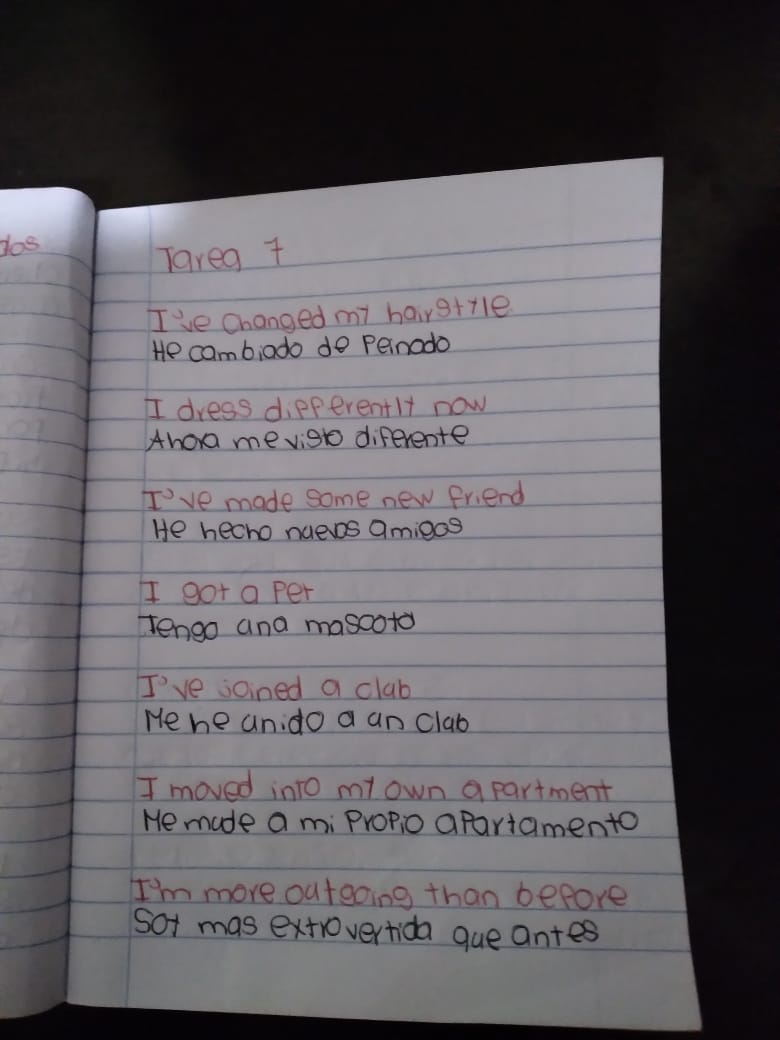 dos
Tarea 7
I've changed my hairstyle
He cambiado de Peinado
I dress differently now
Ahora me visto diferente
I've made some new friend
He hecho nuevos amigos
I got a Pet
Tengo una mascota
I've joined a club
Me he unido a un club
I moved into my own apartment
Me mude a mi Propio aPartamento
I'm more outgoing than before
Soy mas extrovertida que antes